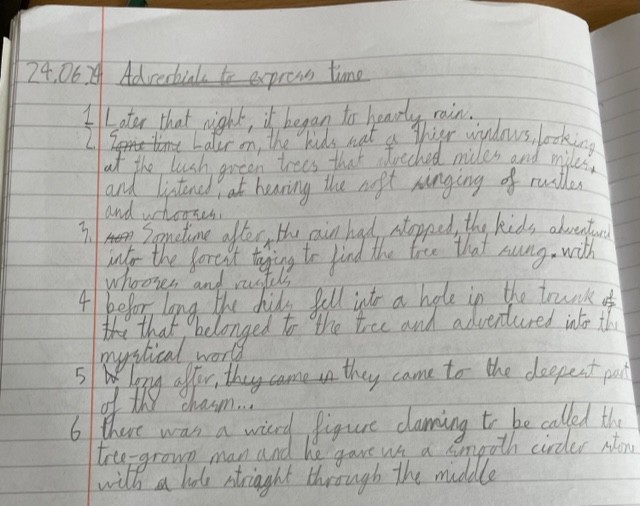 24.06.24 Adverbials to express time
1 Later that night, it began to heavly rain.
2. Some time Later on, the kids sat a thier windows, looking
at the lush green trees that streched miles and miles,
and listened, at hearing the soft singing of rustles
and whooses.
3. Sometime after, the rain had stopped, the kids adventured
into the forest trying to find the tree that sung. with
whooses and rustels
4 befor long the kids fell into a hole in the trunk of
the that belonged to the tree and adventured into the
mystical world
5 long after, they came in they came to the deepest part
of the chasm...
6 there was a wierd figure claming to be called the
tree-grown man and he gave us a smooth circler stone
with a hole striaght through the middle